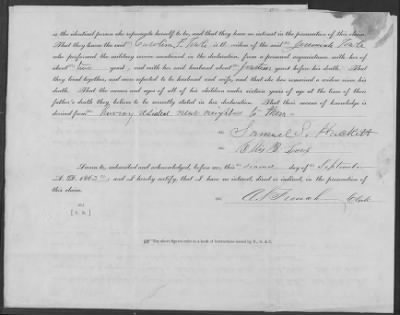 is the identical person she represents herself to be, and that they have no interest in the prosecution of this claim.
That they knew the said Caroline S. is widow of the said Jeremiah
who performed the military service mentioned in the declaration from a personal acquaintance with her of
about years, and with her said husband about years before his death. That
they lived together, and were reputed to be husband and wife, and that she has remained a widow since his
death. That the names and ages of all of his children under sixteen years of age at the time of their
father's death they believe to be correctly stated in his declaration. That their means of knowledge is
derived from having resided near neighbors to them
Samuel S.

Sworn to, subscribed and acknowledged, before me, this second day of September
A. D. 1863, and I hereby certify, that I have no interest, direct or indirect, in the prosecution of
this claim.
A. French Clerk
[L. S.]